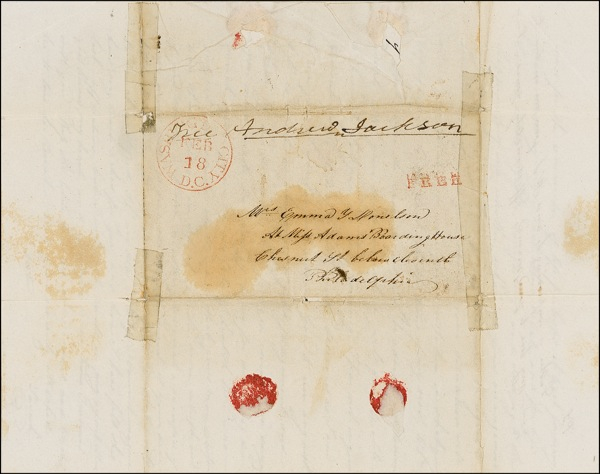 Free Andrew Jackson
WASHINGTON CITY D.C. FEB 18
FREE
Mrs Emma Y Donelson
At Miss Adams Boarding House
Chesnut St below eleventh
Philadelphia